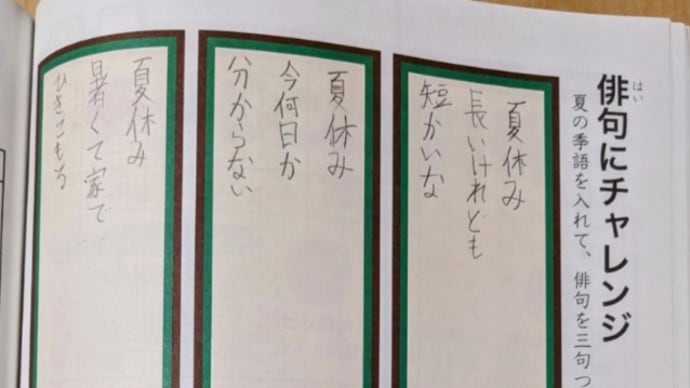 俳句にチャレンジ
はい
夏の季語を入れて、俳句を三句つ
夏休み
長いけれども
短かいな
夏休み
今何日か
分からない
夏休み
暑くて家で
ひきこもる